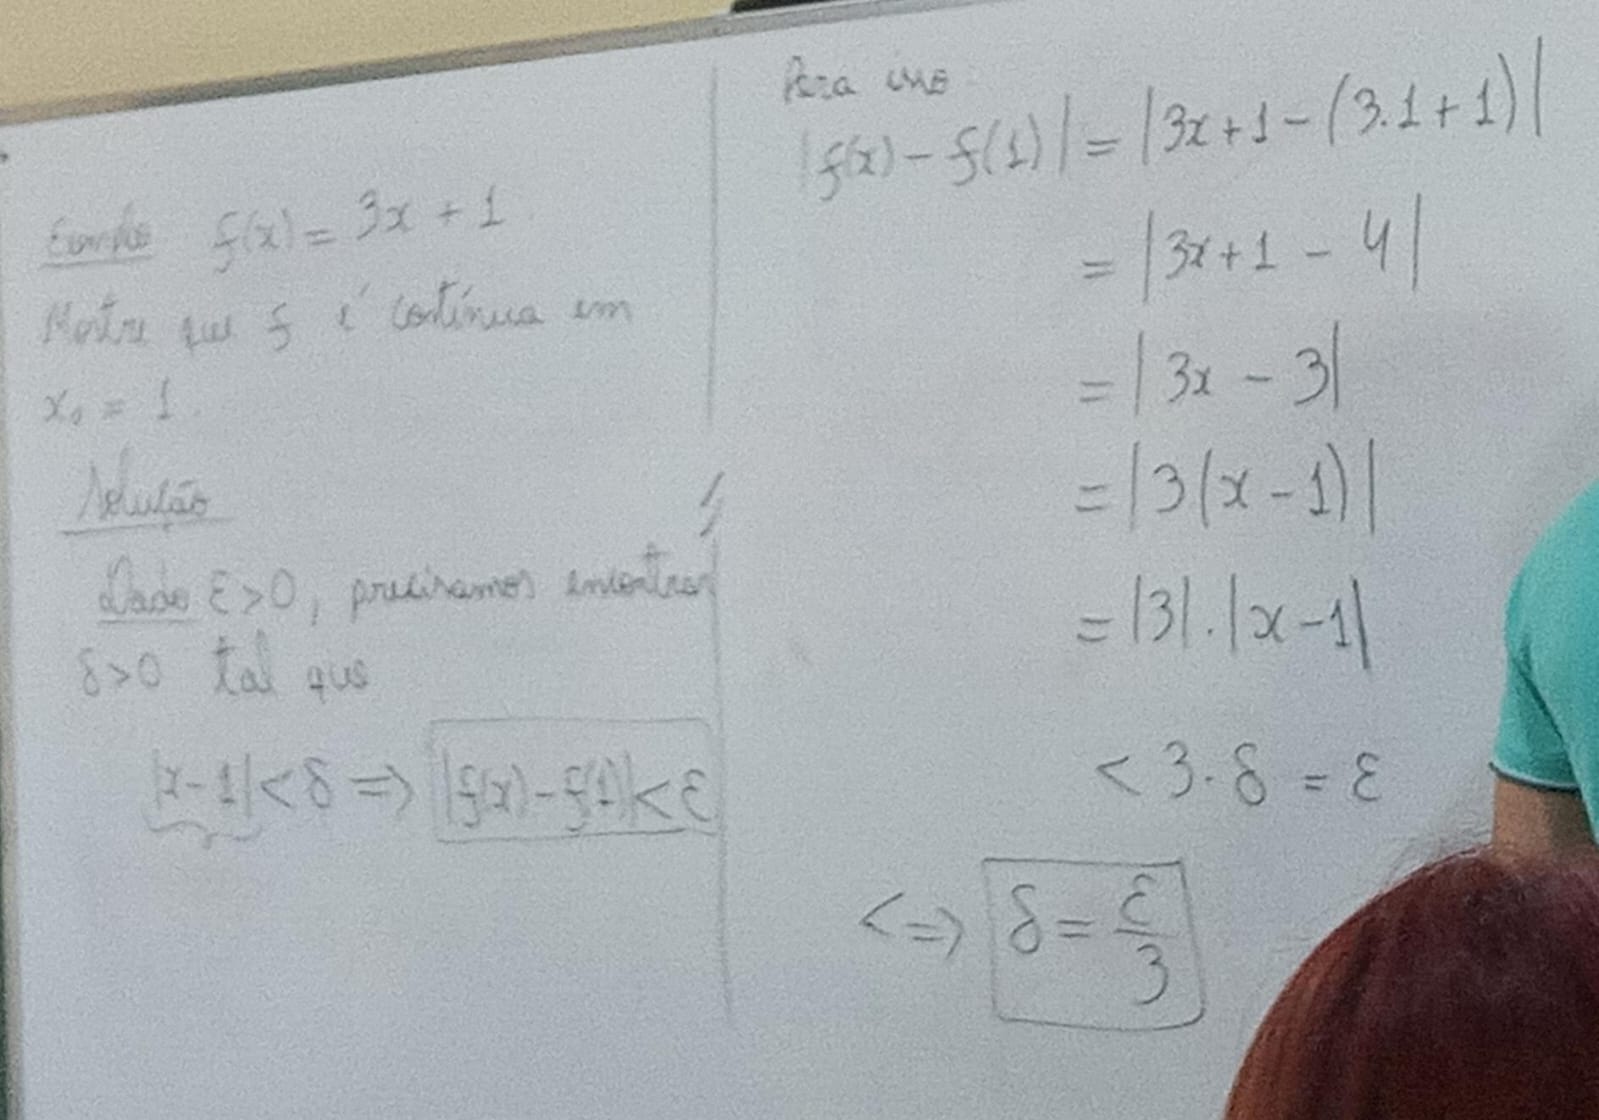 Exemplo f(x) = 3x + 1.
Mostre que f é contínua em
x₀ = 1.
Solução
Dado ε > 0, precisamos encontrar
δ > 0 tal que
|x - 1| < δ => |f(x) - f(1)| < ε
Para isso
|f(x) - f(1)| = |3x + 1 - (3.1 + 1)|
= |3x + 1 - 4|
= |3x - 3|
= |3(x - 1)|
= |3| . |x - 1|
< 3 . δ = ε
<=> δ = ε/3